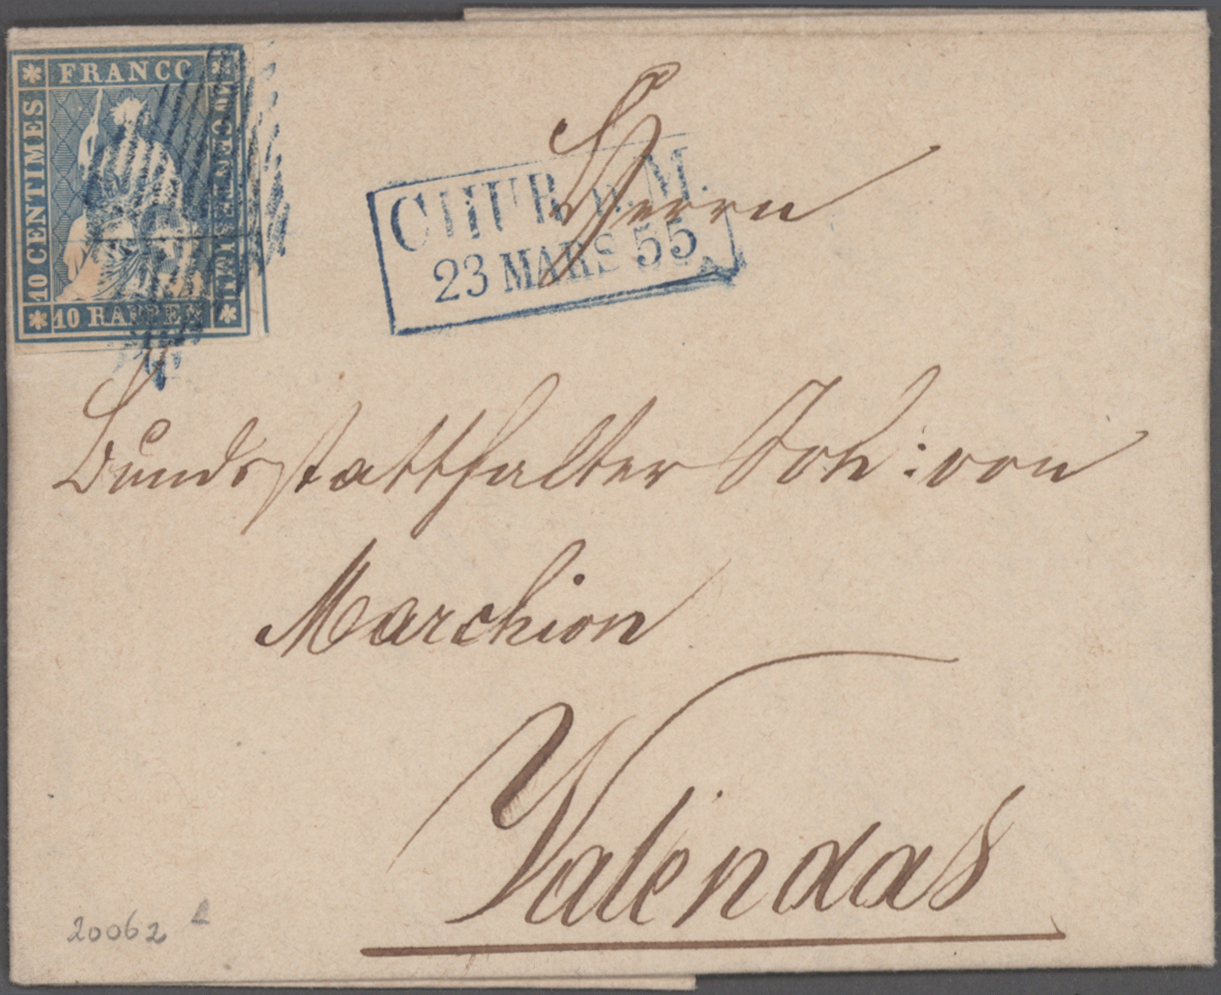 FRANCO
10 CENTIMES
10 RAPPEN
CHUR n. M.
23 MARS 55
Herrn
Bundsstatthalter Joh: von
Marchion
Valendas
20062